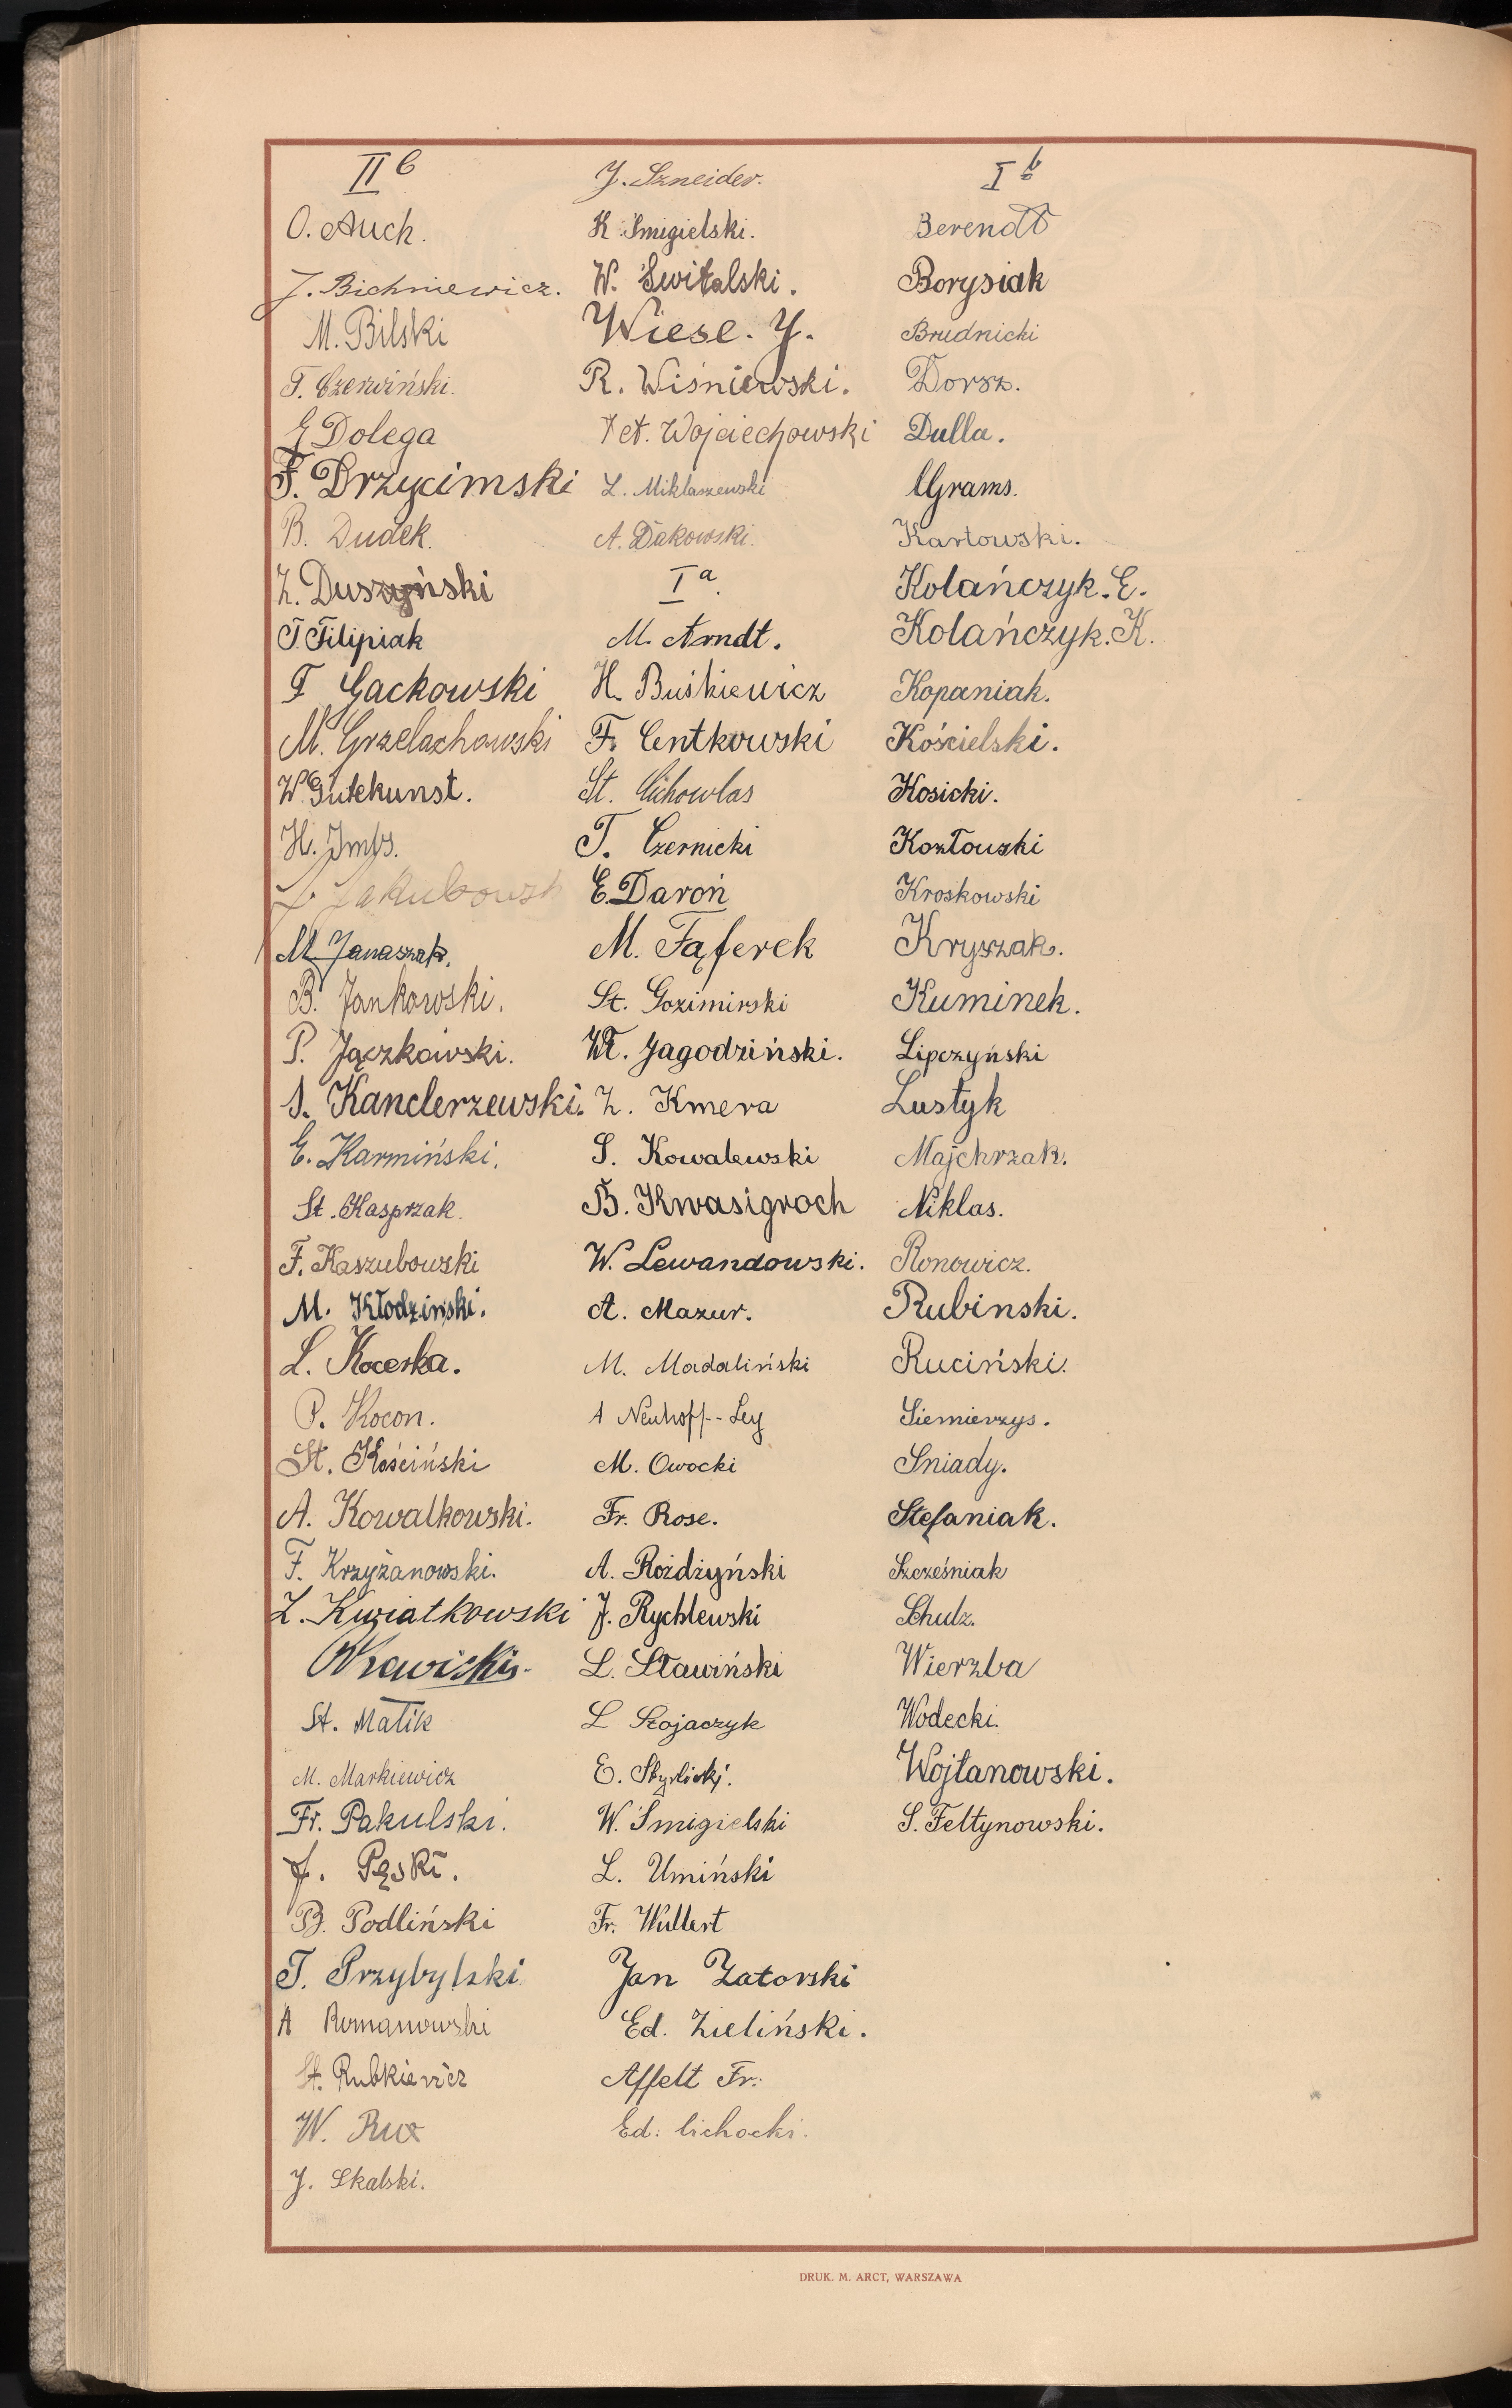 II b
O. Auch.
J. Bichniewicz.
M. Bilski
T. Czerwiński.
E Dolega
F. Drzycimski
B. Dudek.
Z. Duszyński
T. Filipiak
F Gackowski
M. Grzelachowski
W. Gutekunst.
H. Imbs.
J. Jakubowsk
M. Janaszak.
B. Jankowski.
P. Jączkowski.
S. Kanclerzewski.
E. Karmiński.
St. Kasprzak.
F. Kaszubowski
M. Kłodziński.
L. Kocerka.
P. Kocon.
St. Kościński
A. Kowalkowski.
F. Krzyżanowski.
Z. Kwiatkowski
St. Matik
M. Markiewicz
Fr. Pakulski.
J. Pęski.
B. Podliński
T. Przybylski
A Romanowski
St. Rubkiewicz
W. Rux
J. Skalski.
J. Szneider.
K Smigielski.
W. Świtalski.
Wiese. J.
R. Wiśniewski.
Wojciechowski
L. Miklaszewski
A. Dakowski.
I a.
M. Arndt.
H. Buśkiewicz
F. Centkowski
St. Cichowlas
T. Czernicki
E. Daroń
M. Fąferek
St. Gozimirski
Wł. Jagodziński.
Z. Kmera
S. Kowalewski
B. Kwasigroch
W. Lewandowski.
A. Mazur.
M. Madaliński
A Neuhoff-Ley
M. Owocki
Fr. Rose.
A. Rożdżyński
J. Rychlewski
L. Sławiński
L Stojaczyk
W. Smigielski
L. Umiński
Fr. Wullert
Jan Zatorski
Ed. Zieliński.
Affelt Fr.
Ed. Cichocki.
I b
Berendt
Borysiak
Brudnicki
Dorsz.
Dulla.
Grams.
Karłowski.
Kolańczyk. E.
Kolańczyk. K.
Kopaniak.
Kościelski.
Kosicki.
Kozłowski
Kroskowski
Kryszak.
Kuminek.
Lipczyński
Lustyk
Majchrzak.
Niklas.
Ronowicz.
Rubinski.
Ruciński.
Siemierzys.
Sniady.
Stefaniak.
Szcześniak
Schulz.
Wierzba
Wodecki.
Wojtanowski.
S. Feltynowski.
DRUK. M. ARCT, WARSZAWA